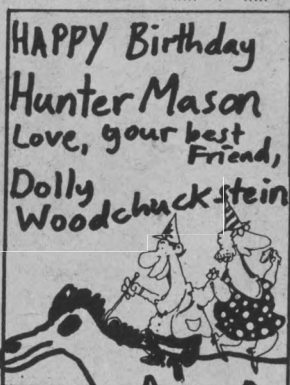 HAPPY Birthday
Hunter Mason
Love, your best
Friend,
Dolly
Woodchuckstein